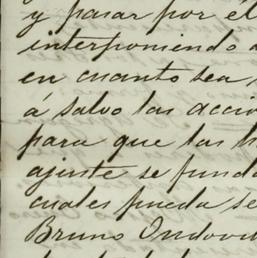 y pasar por él
interponiendo
en cuanto sea
á salvo las accio
para que las h
ajuste se funda
cuales pueda se
Bruno Ondovi